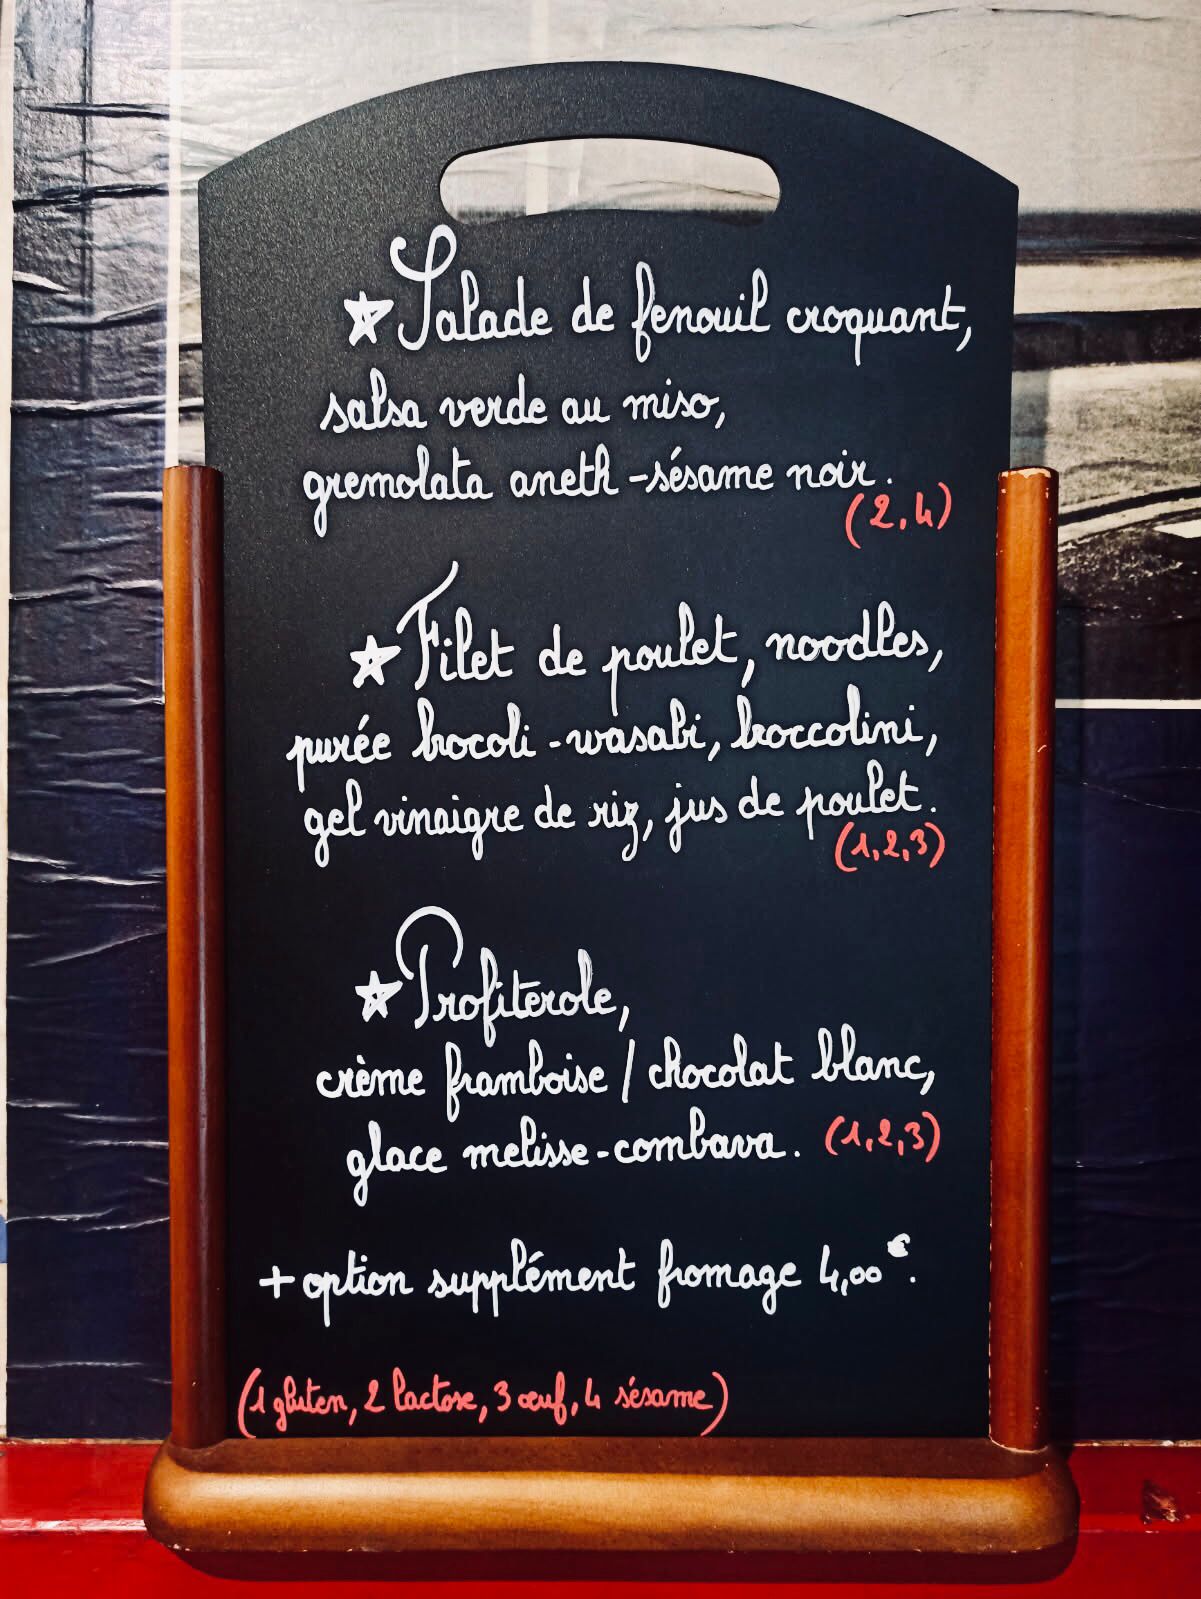 Salade de fenouil croquant,
salsa verde au miso,
gremolata aneth - sésame noir.
(2,4)
Filet de poulet, noodles,
purée brocoli - wasabi, broccolini,
gel vinaigre de riz, jus de poulet.
(1,2,3)
Profiterole,
crème framboise / chocolat blanc,
glace melisse - combava. (1,2,3)
+ option supplément fromage 4,00€.
(1 gluten, 2 lactose, 3 œuf, 4 sésame)